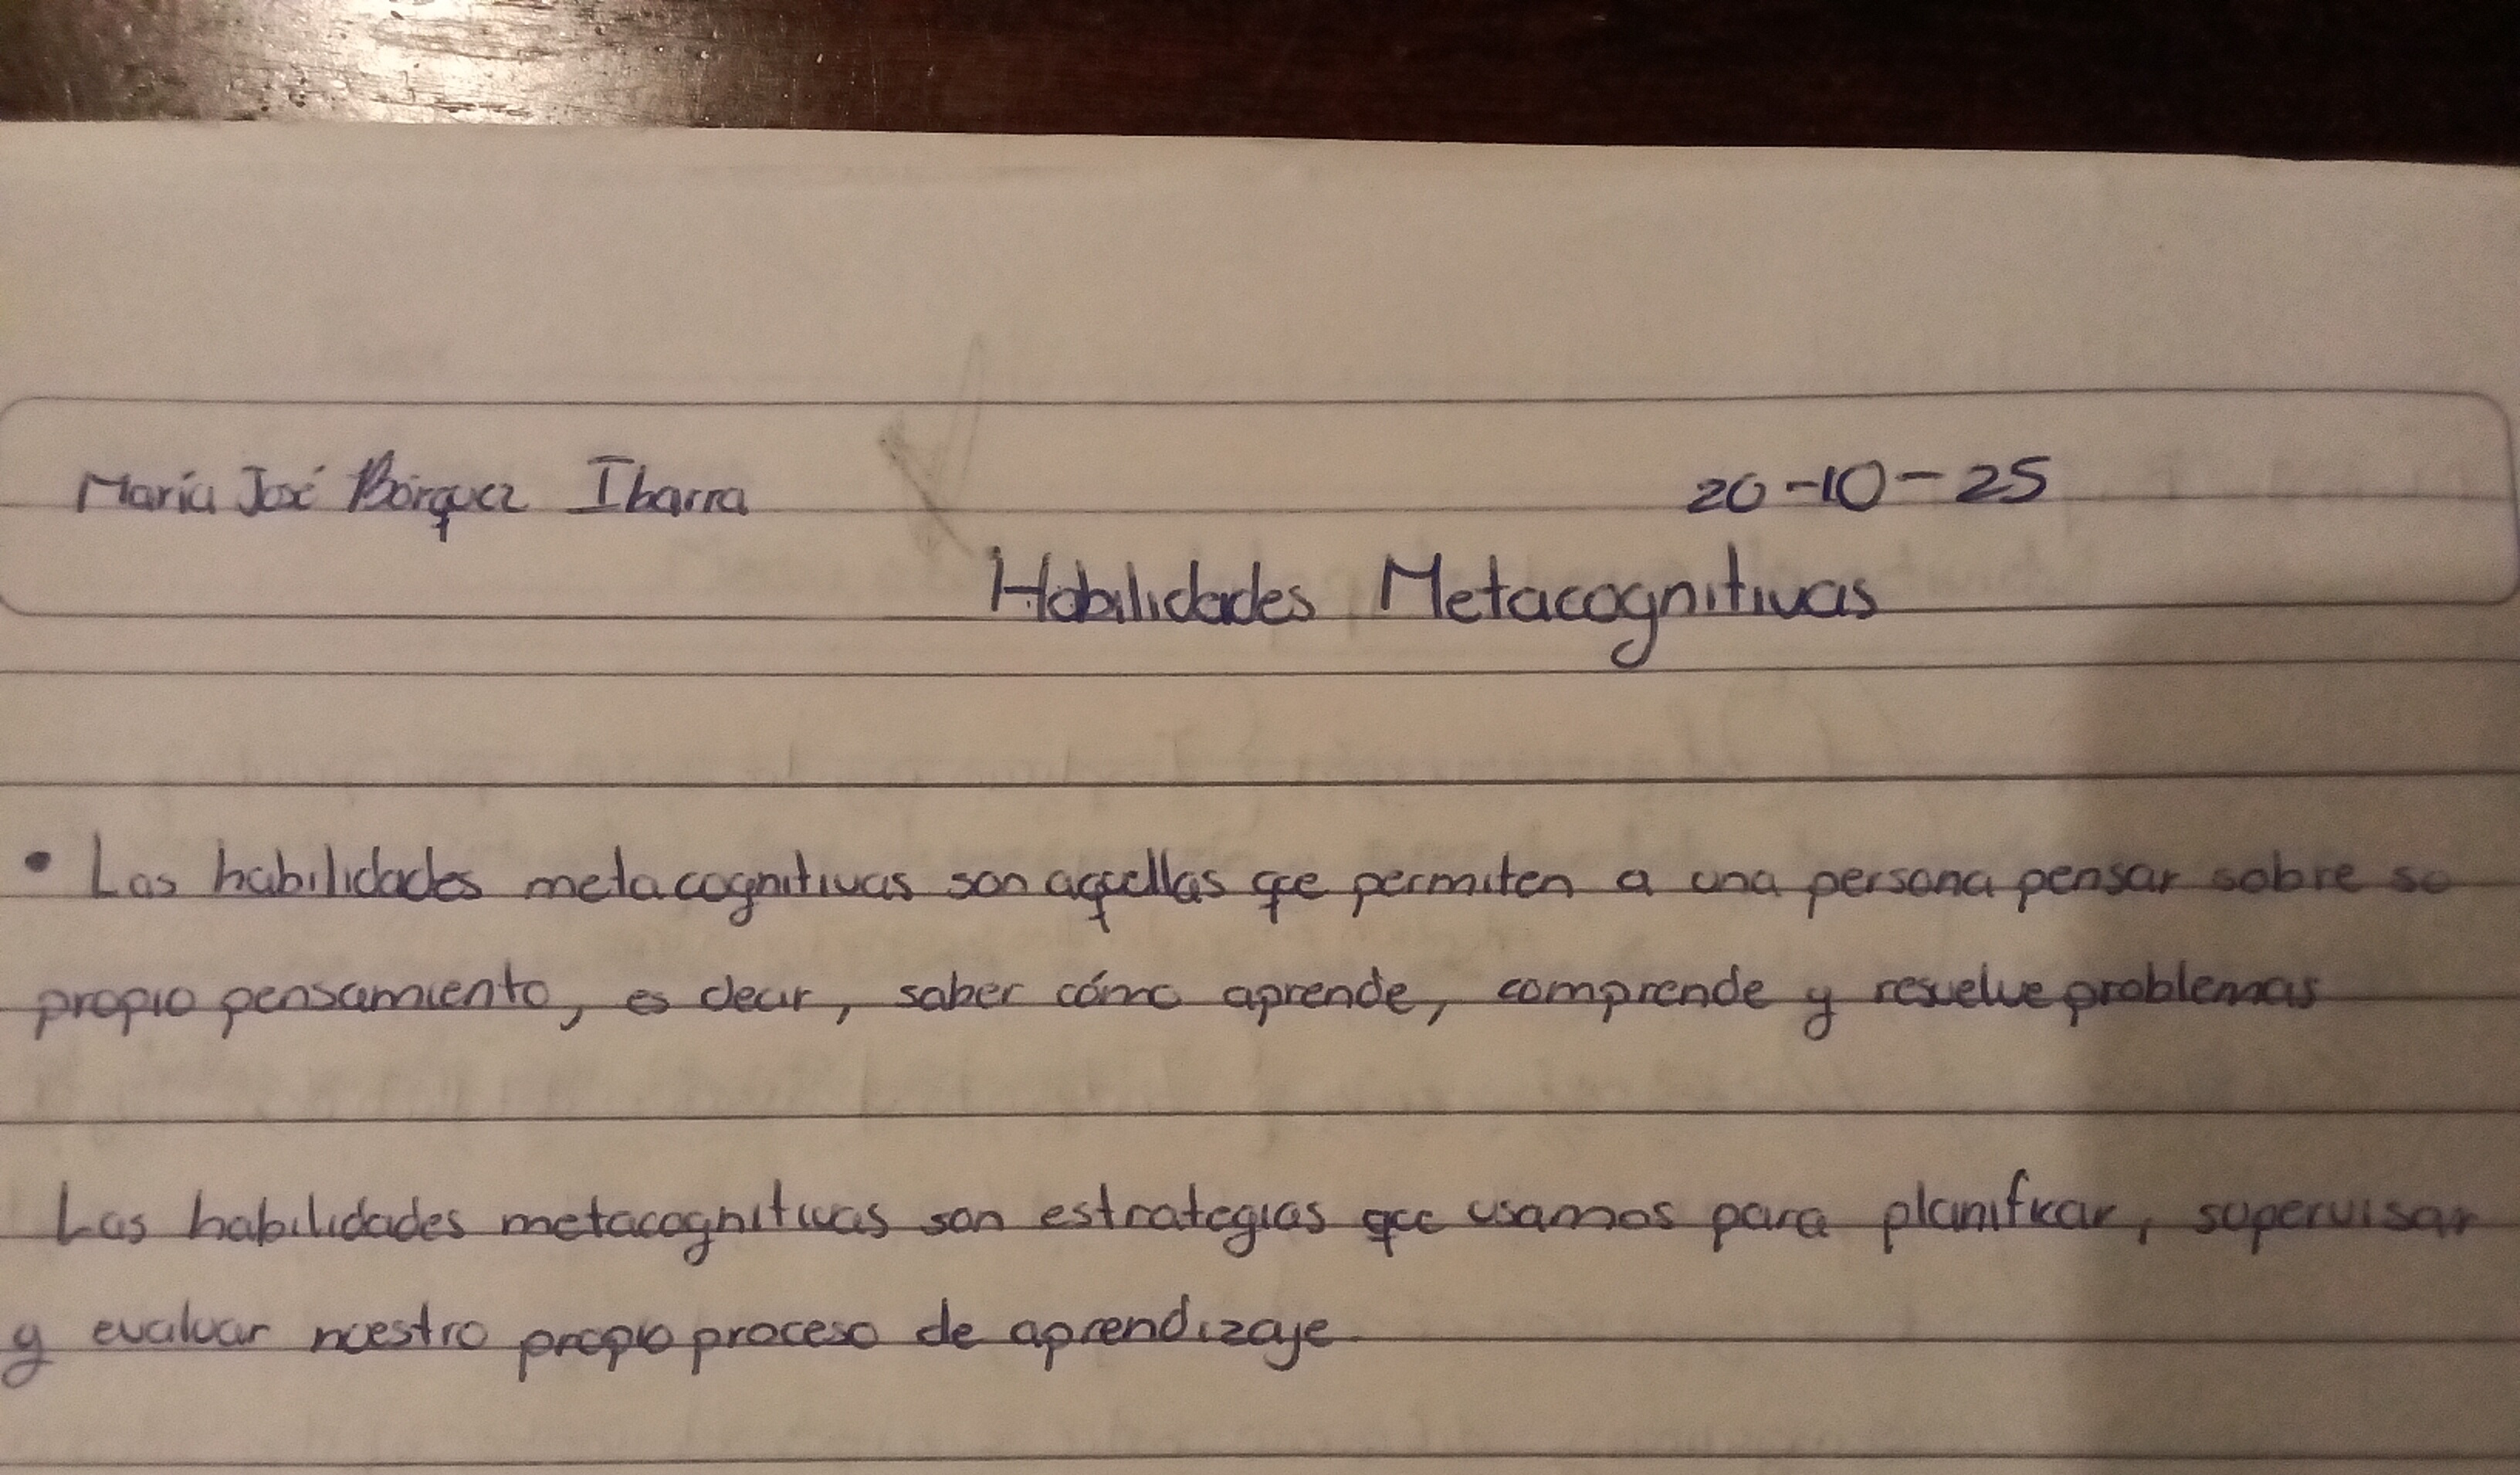 María José Bórquez Ibarra
20-10-25
Habilidades Metacognitivas
• Las habilidades metacognitivas son aquellas que permiten a una persona pensar sobre su
propio pensamiento, es decir, saber cómo aprende, comprende y resuelve problemas
Las habilidades metacognitivas son estrategias que usamos para planificar, supervisar
y evaluar nuestro propio proceso de aprendizaje